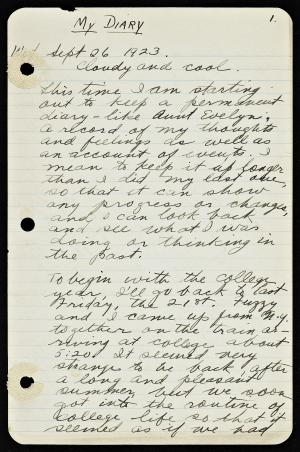 My Diary
1.
Wed Sept 26 1923.
Cloudy and cool.
This time I am starting
out to keep a permanent
diary - like Aunt Evelyn;
a record of my thoughts
and feelings as well as
an account of events. I
mean to keep it up longer
than I did my last one,
so that it can show
any progress or changes,
and I can look back
and see what I was
doing or thinking in
the past.
To begin with the college
year, I'll go back to last
Friday, the 21st. Fuzzy
and I came up from N.Y.
together on the train, ar-
riving at college about
5:20. It seemed very
strange to be back after
a long and pleasant
summer, but we soon
got into the routine of
college life so that it
seemed as if we had